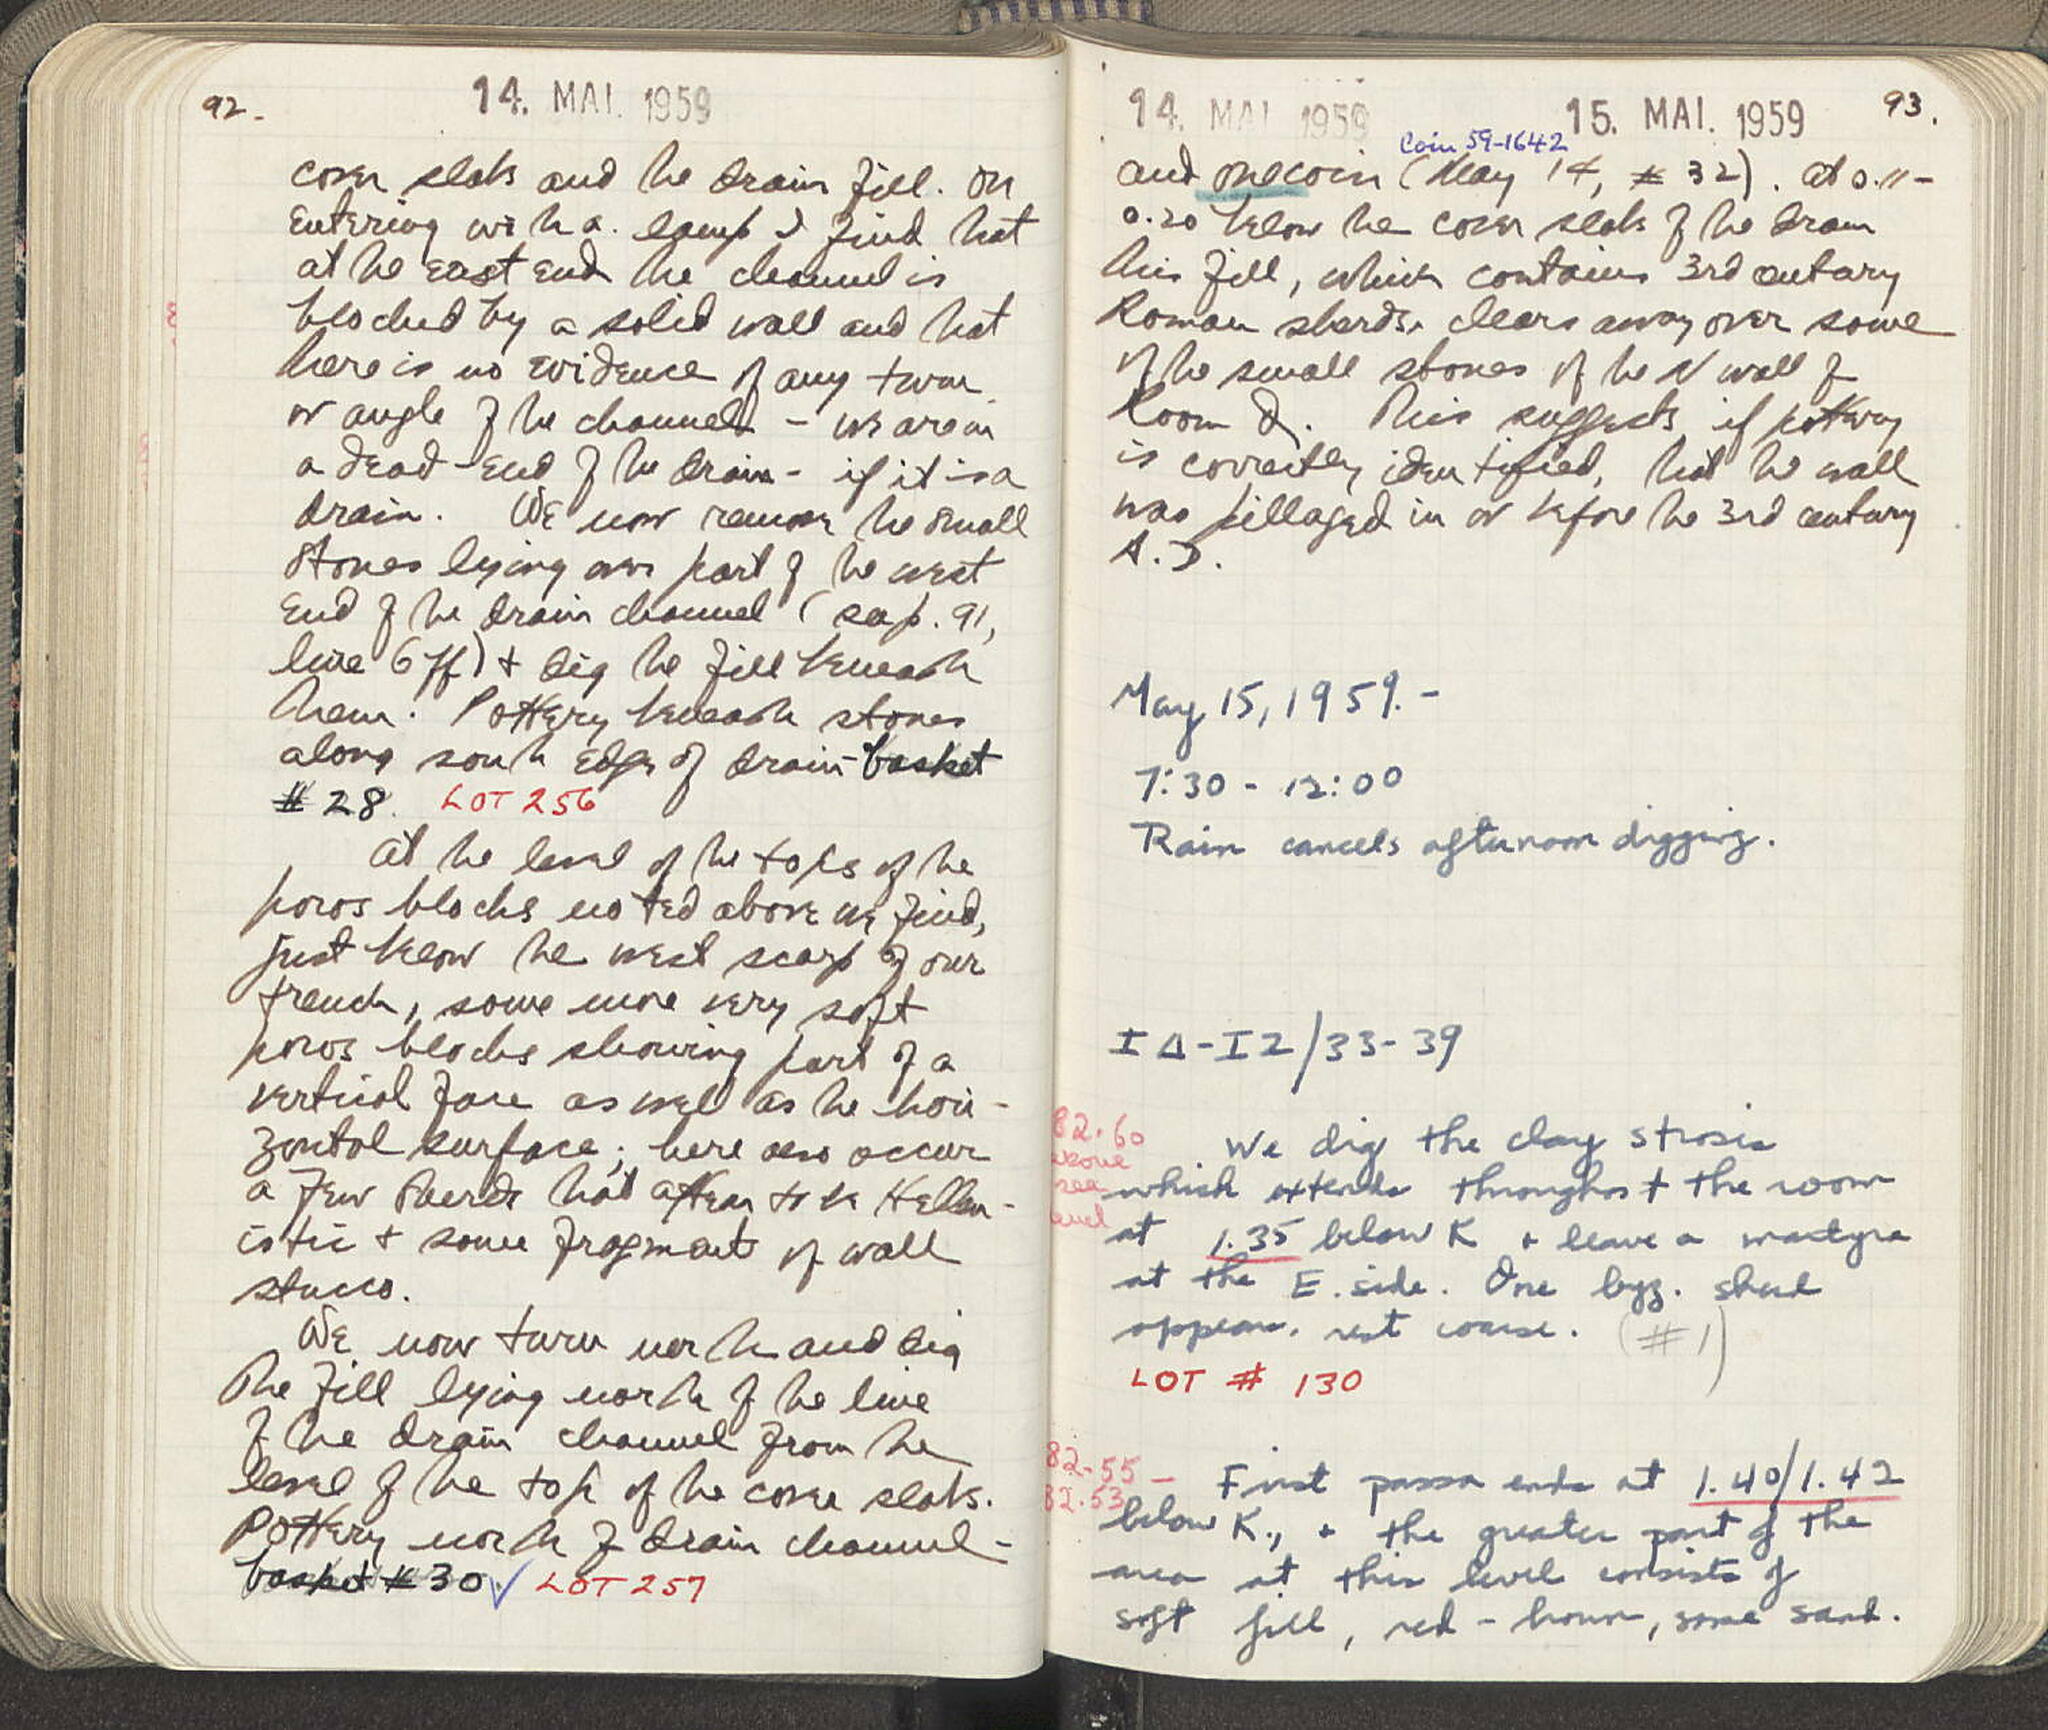 92.
14. MAI. 1959
cover slabs and the drain fill. On
entering with a lamp I find that
at the east end the channel is
blocked by a solid wall and that
there is no evidence of any turn
or angle of the channel - we are in
a dead-end of the drain - if it is a
drain. We now remove the small
stones lying over part of the west
end of the drain channel (see p. 91,
line 6 ff) + dig the fill beneath
them. Pottery beneath stones
along south edge of drain - basket
# 28. LOT 256
At the level of the tops of the
poros blocks noted above we find,
just below the west scarp of our
trench, some more very soft
poros blocks showing part of a
vertical face as well as the hori-
zontal surface; here also occur
a few sherds that appear to be Hellen-
istic + some fragments of wall
stucco.
We now turn north and dig
the fill lying north of the line
of the drain channel from the
level of the top of the cover slabs.
Pottery north of drain channel -
basket # 30. ✓ LOT 257
14. MAI 1959
15. MAI. 1959
93.
Coin 59-1642
and one coin (May 14, # 32). At 0.11-
0.20 below the cover slabs of the drain
this fill, which contains 3rd century
Roman sherds, clears away over some
of the small stones of the N wall of
Room . This suggests, if pottery
is correctly identified, that the wall
was pillaged in or before the 3rd century
A.D.
May 15, 1959. -
7:30 - 12:00
Rain cancels afternoon digging.
IΔ-IZ/33-39
82.60
above
sea
level
We dig the clay strosis
which extends throughout the room
at 1.35 below K + leave a martyra
at the E. side. One byz. sherd
appears, rest coarse. (#1)
LOT # 130
82.55 -
82.53
First passa ends at 1.40/1.42
below K., + the greater part of the
area at this level consists of
soft fill, red-brown, some sand.